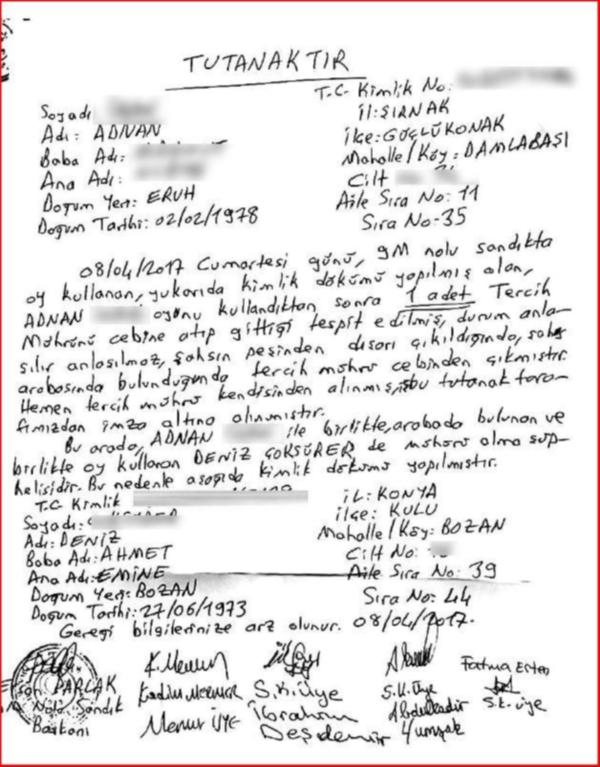 TUTANAKTIR
T.C. Kimlik No:
Soyadı
Adı: ADNAN
Baba Adı:
Ana Adı:
Doğum Yeri: ERUH
Doğum Tarihi: 02/02/1978
İl: ŞIRNAK
İlçe: GÜÇLÜKONAK
Mahalle/Köy: DAMLABAŞI
Cilt
Aile Sıra No: 11
Sıra No-35
08/04/2017 Cumartesi günü, 9M nolu sandıkta
oy kullanan, yukarıda kimlik dökümü yapılmış olan,
ADNAN oyunu kullandıktan sonra 1 adet Tercih
Mührünü cebine atıp gittiği tespit edilmiş, durum anla-
şılır anlaşılmaz, şahsın peşinden dışarı çıkıldığında, şahıs
arabasında bulunduğunda tercih mührü cebinden çıkmıştır.
Hemen tercih mührü kendisinden alınmış, işbu tutanak tara-
fımızdan imza altına alınmıştır.
Bu arada, ADNAN ile birlikte, arabada bulunan ve
birlikte oy kullanan DENİZ GÖKSÜRER de mührü alma şüp-
helisidir. Bu nedenle aşağıda kimlik dökümü yapılmıştır.
T.C. Kimlik
Soyadı:
Adı: DENİZ
Baba Adı: AHMET
Ana Adı: EMİNE
Doğum Yeri: BOZAN
Doğum Tarihi: 27/06/1973
İL: KONYA
ilçe: KULU
Mahalle/Köy: BOZAN
Cilt No:
Aile Sıra No: 39
Sıra No: 44
Gereği bilgilerinize arz olunur. 08/04/2017.
PARLAK
Nolu Sandık
Başkanı
K. Memur
Kadim Memur
Memur ÜYE
S.K. Üye
İbrahim
Deşdemir
S.K. Üye
Abdulkadir
Yumşak
Fatma Erten
S.K. Üye